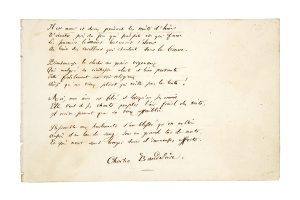 Il est amer et doux, pendant les nuits d'hiver
D'écouter près du feu qui palpite et qui fume
Les souvenirs lointains lentement s'élever
Au bruit des carillons qui chantent dans la brume.
Bienheureuse la cloche au gosier vigoureux
Qui malgré sa vieillesse alerte et bien portante
Jette fidèlement son cri religieux
Ainsi qu'un vieux soldat qui veille sous la tente !
Moi, mon âme est fêlée, et lorsqu'en ses ennuis
Elle veut de ses chants peupler l'air froid des nuits,
Il arrive souvent que sa voix affaiblie
Ressemble aux hurlements d'un blessé qu'on oublie
Auprès d'un lac de sang, sous un grand tas de morts,
Et qui meurt sans bouger dans d'immenses efforts.
Charles Baudelaire.